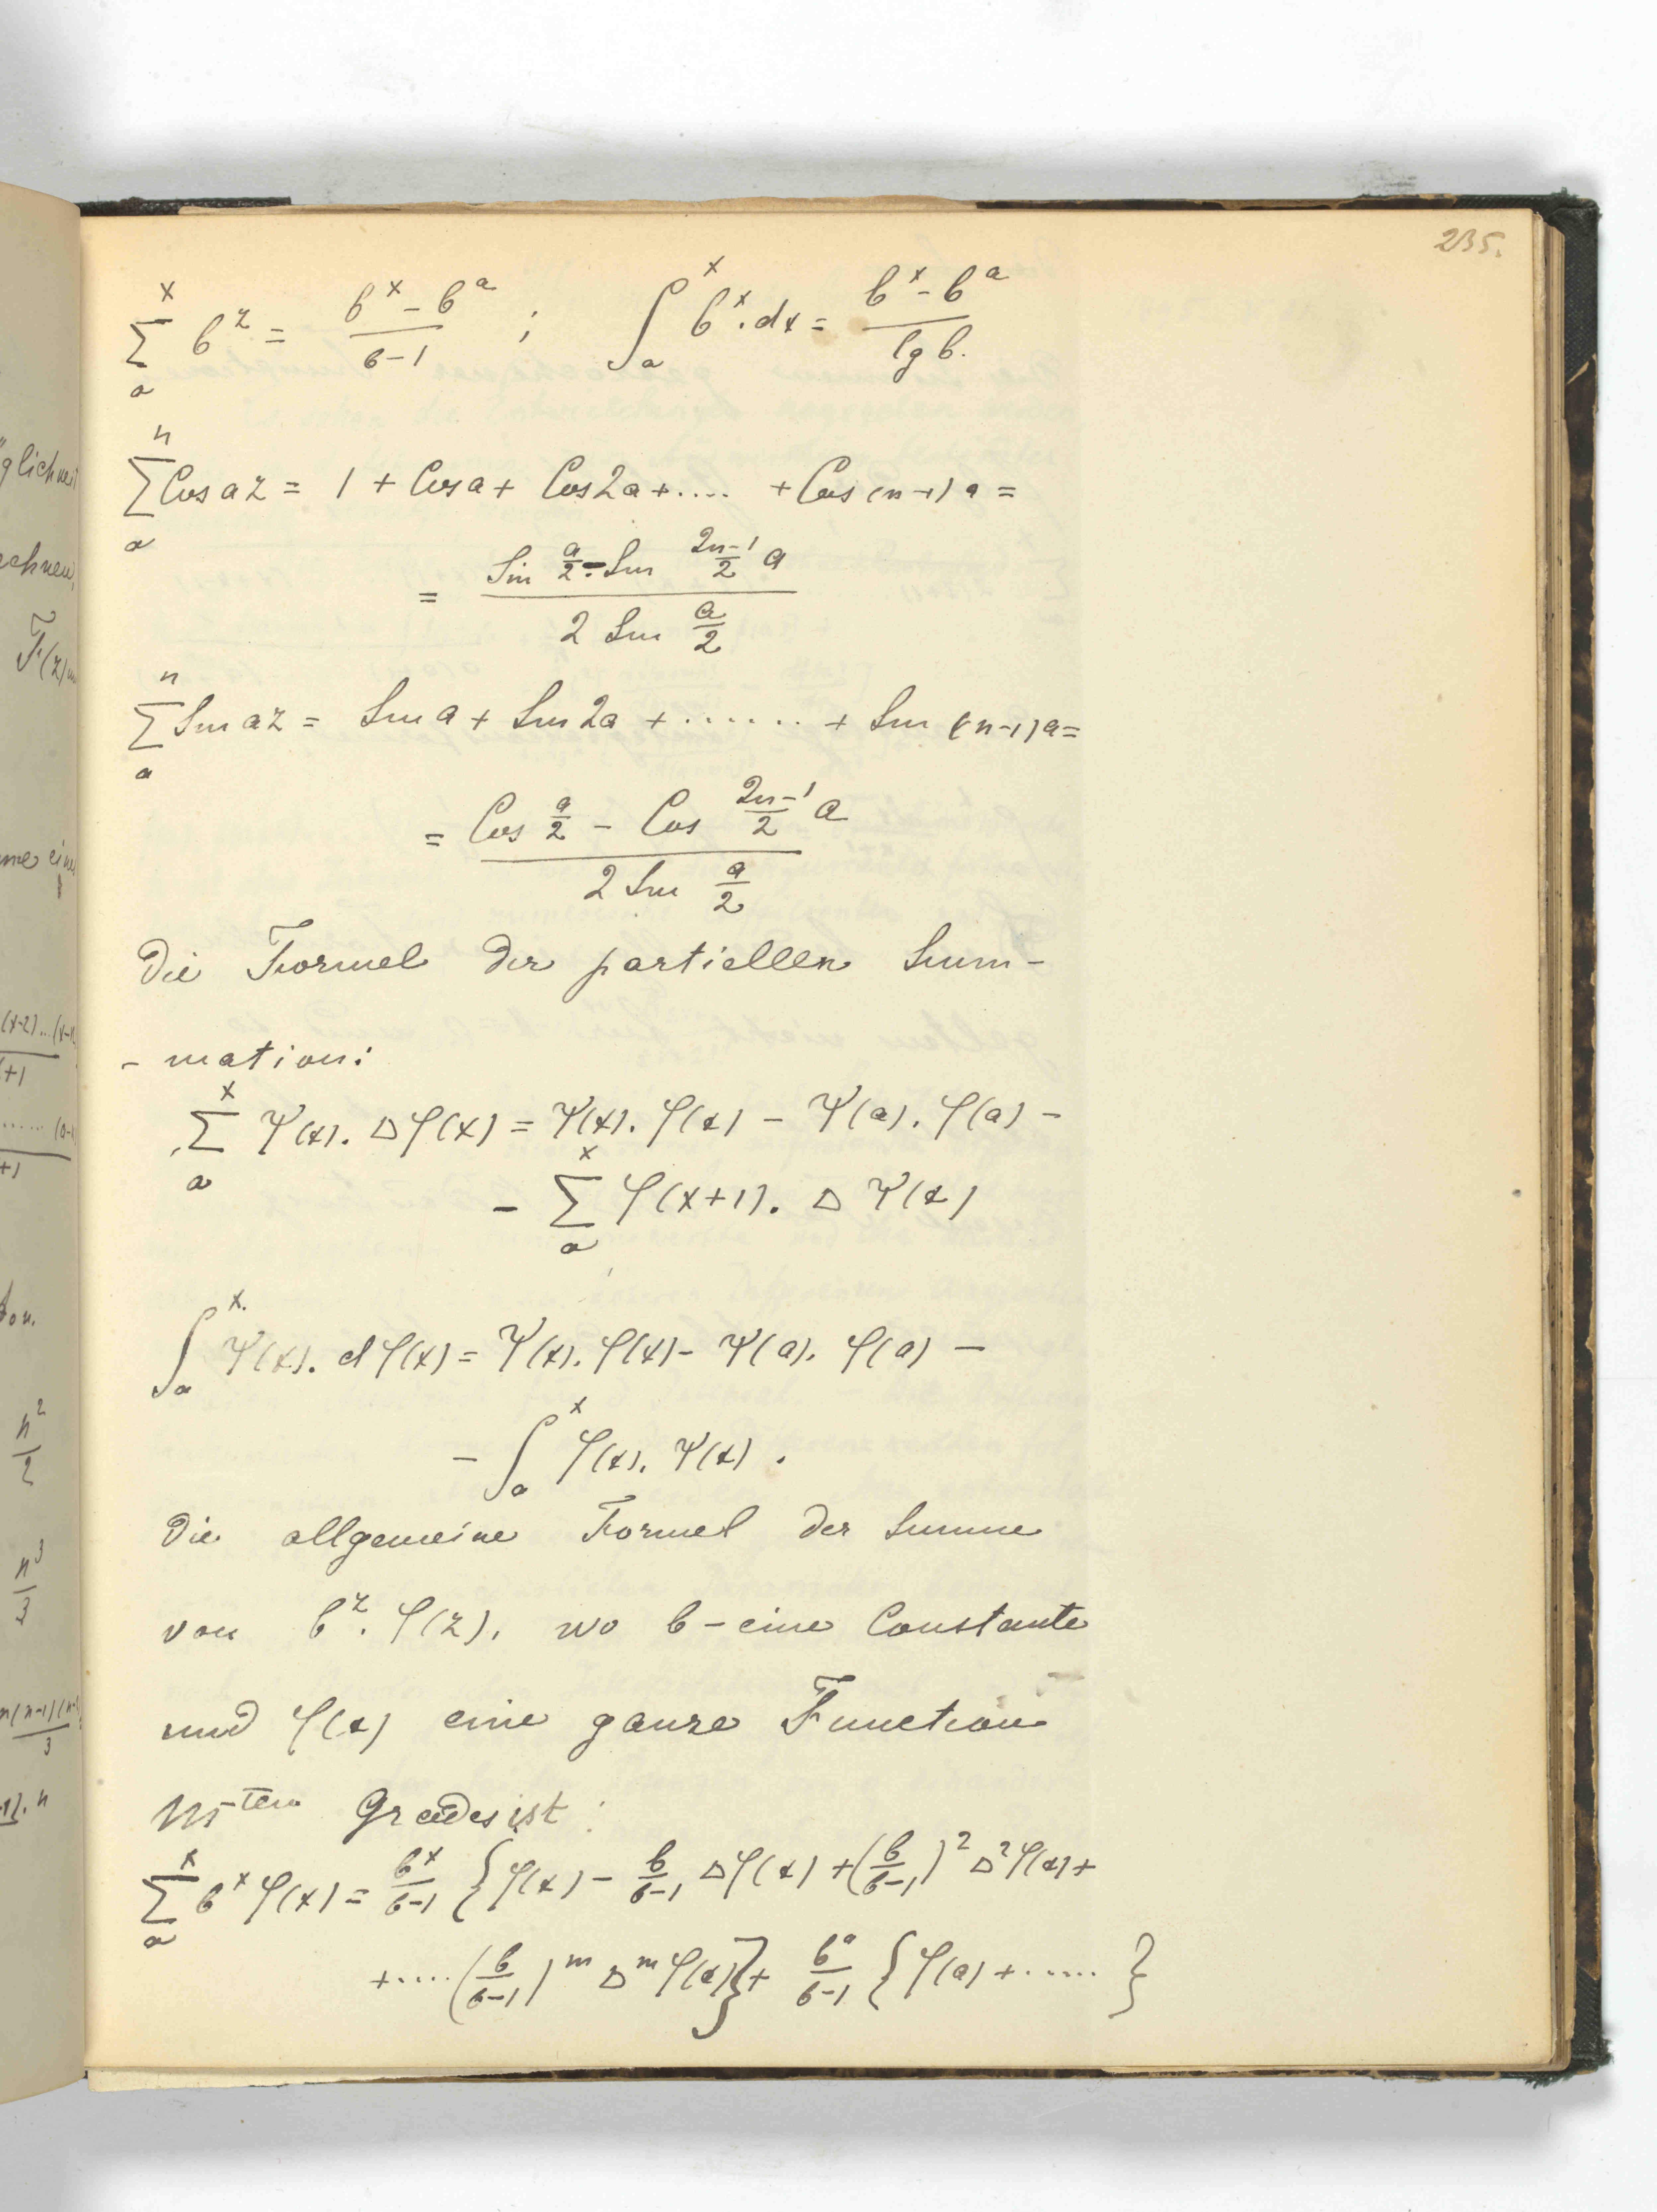 235.
∑ₐˣ b^z = (b^x - b^a)/(b-1) ; ∫ₐˣ b^x. dx = (b^x - b^a)/(lg b.)
∑ₐⁿ Cos az = 1 + Cos a + Cos 2a + .... + Cos (n-1) a =
= (Sin a/2 ÷ Sin (2n-1)/2 a)/(2 Sin a/2)
∑ₐⁿ Sin az = Sin a + Sin 2a + ....... + Sin (n-1) a =
= (Cos a/2 - Cos (2n-1)/2 a)/(2 Sin a/2)
Die Formel der partiellen Sum-
- mation:
∑ₐˣ Ψ(x). Δφ(x) = Ψ(x). φ(x) - Ψ(a). φ(a) -
- ∑ₐˣ φ(x+1). Δ Ψ(x)
∫ₐˣ Ψ(x). dφ(x) = Ψ(x). φ(x) - Ψ(a). φ(a) -
- ∫ₐˣ φ(x). Ψ(x) .
Die allgemeine Formel der Summe
von b^z. φ(z), wo b - eine Constante
und φ(x) eine ganze Function
m-ten Grades ist :
∑ₐˣ b^x φ(x) = b^x/(b-1) {φ(x) - b/(b-1) Δφ(x) + (b/(b-1))² Δ²φ(x) +
+ ..... (b/(b-1))^m Δ^m φ(x)} + b^a/(b-1) {φ(a) + ..... }